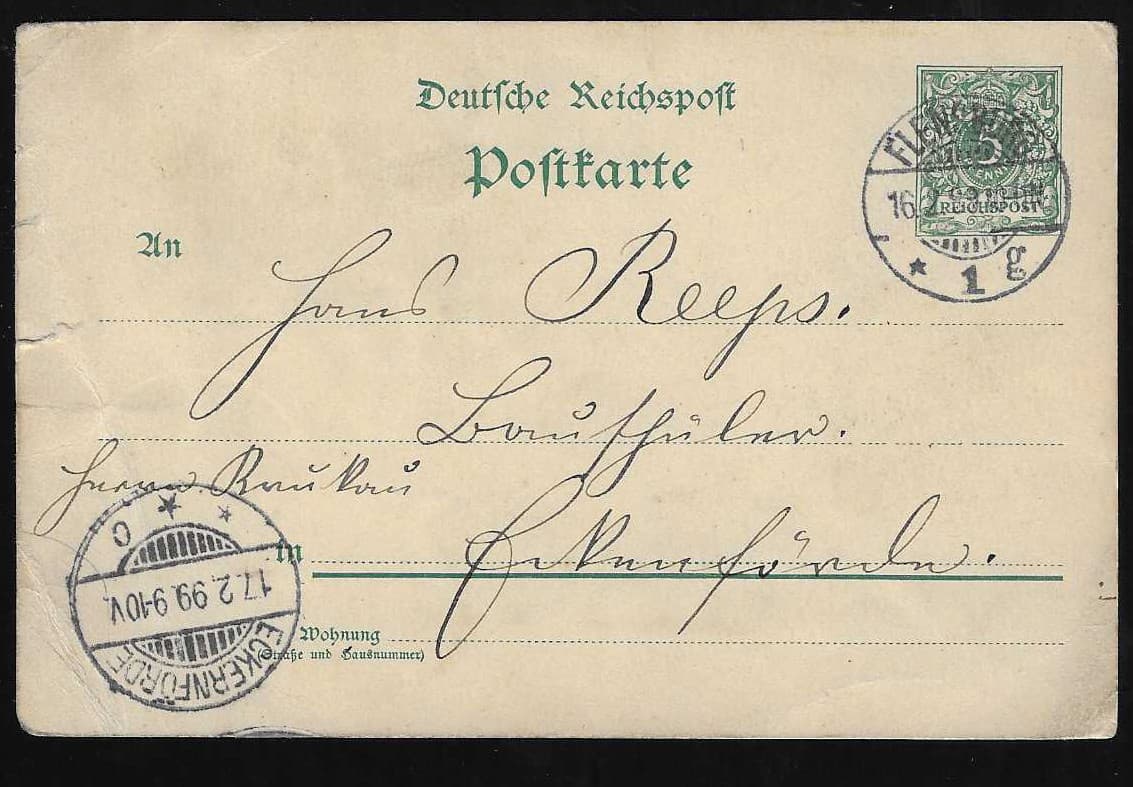 Deutsche Reichspost
Postkarte
5
PFENNIG
REICHSPOST
FLENSBURG
16.2.99
* 1 g
An
Hans Reeps.
Bauschüler.
Herrn Krukau
in Eckenförde.
Wohnung
(Straße und Hausnummer)
ECKERNFÖRDE
17.2.99.9-10V.
* * C